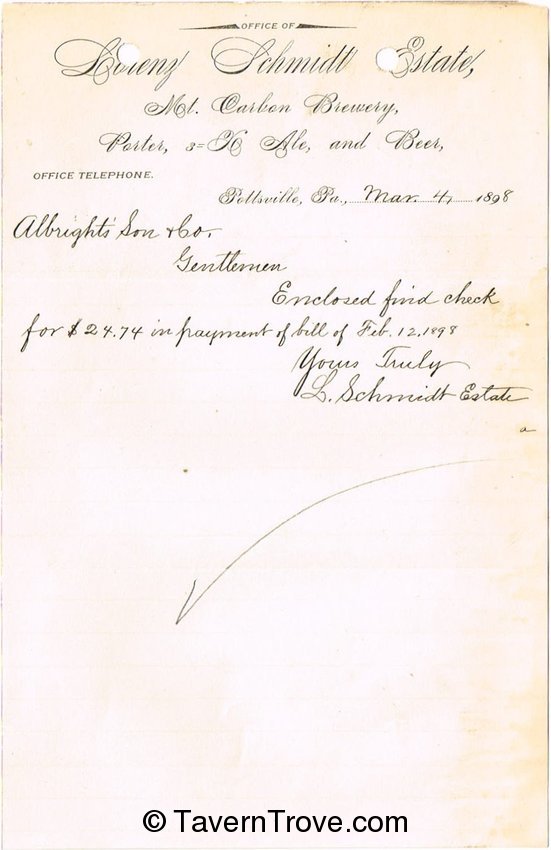 OFFICE OF
Lorenz Schmidt Estate,
Mt. Carbon Brewery,
Porter, 3=X Ale, and Beer,
OFFICE TELEPHONE.
Pottsville, Pa., Mar. 4, 1898
Albright Son & Co.
Gentlemen
Enclosed find check
for $24.74 in payment of bill of Feb. 12, 1898
Yours Truly
L. Schmidt Estate
a
© TavernTrove.com